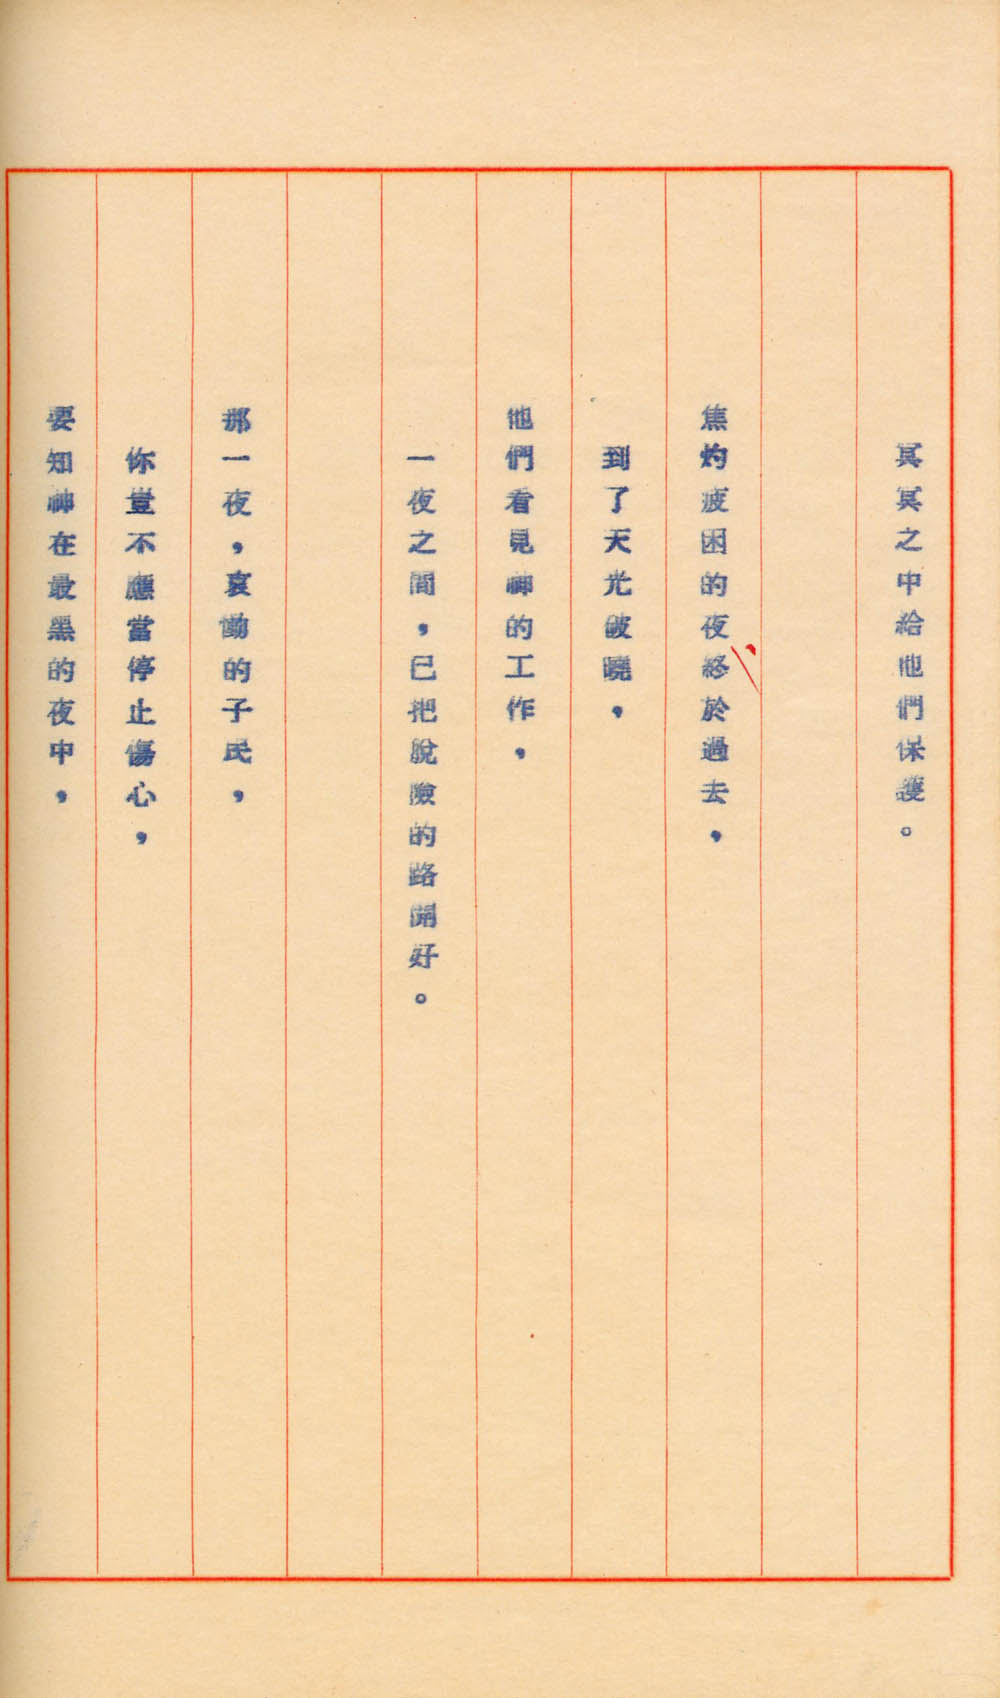 冥冥之中給他們保護。
焦灼疲困的夜終於過去，
到了天光破曉，
他們看見神的工作，
一夜之間，已把脫險的路開好。
那一夜，哀慟的子民，
你豈不應當停止傷心，
要知神在最黑的夜中，